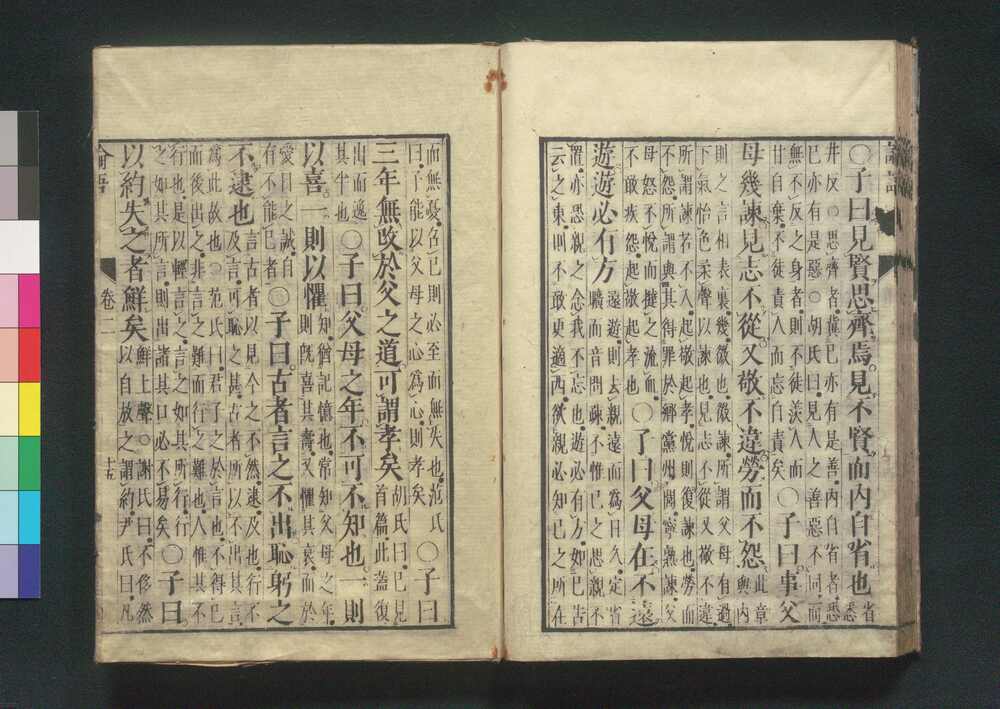 論語
○子曰見賢思齊焉見不賢而內自省也省悉
井反○思齊者冀己亦有是善內自省者恐
己亦有是惡○胡氏曰見人之善惡不同而
無不反之身者則不徒羨人而
甘自棄不徒責人而忘自責矣○子曰事父
母幾諫見志不從又敬不違勞而不怨此章與內
則之言相表裏幾微也微諫所謂父母有過
下氣怡色柔聲以諫也見志不從又敬不違
所謂諫若不入起敬起孝悅則復諫也勞而
不怨所謂與其得罪於鄉黨州閭寧熟諫父
母怒不悅而撻之流血
不敢疾怨起敬起孝也○子曰父母在不遠
遊遊必有方遠遊則去親遠而爲日久定省
曠而音問疎不惟己之思親不
置亦恐親之念我不忘也遊必有方如己告
云之東則不敢更適西欲親必知己之所在
而無憂召己則必至而無失也范氏
曰子能以父母之心爲心則孝矣○子曰
三年無改於父之道可謂孝矣胡氏曰已見首篇此蓋復
出而逸其半也○子曰父母之年不可不知也一則
以喜一則以懼知猶記憶也常知父母之年則既喜其壽又懼其衰而於
愛日之誠自有不能已者○子曰古者言之不出恥躬之
不逮也言古者以見今之不然逮及也行不及言可恥之甚古者所以不出其言
爲此故也○范氏曰君子之於言也不得已
而後出之非言之難而行之難也人惟其不
行也是以輕言之言之如其所行行
之如其所言則出諸其口必不易矣○子曰
以約失之者鮮矣鮮上聲○謝氏曰不侈然以自放之謂約尹氏曰凡
論語
卷二
十五